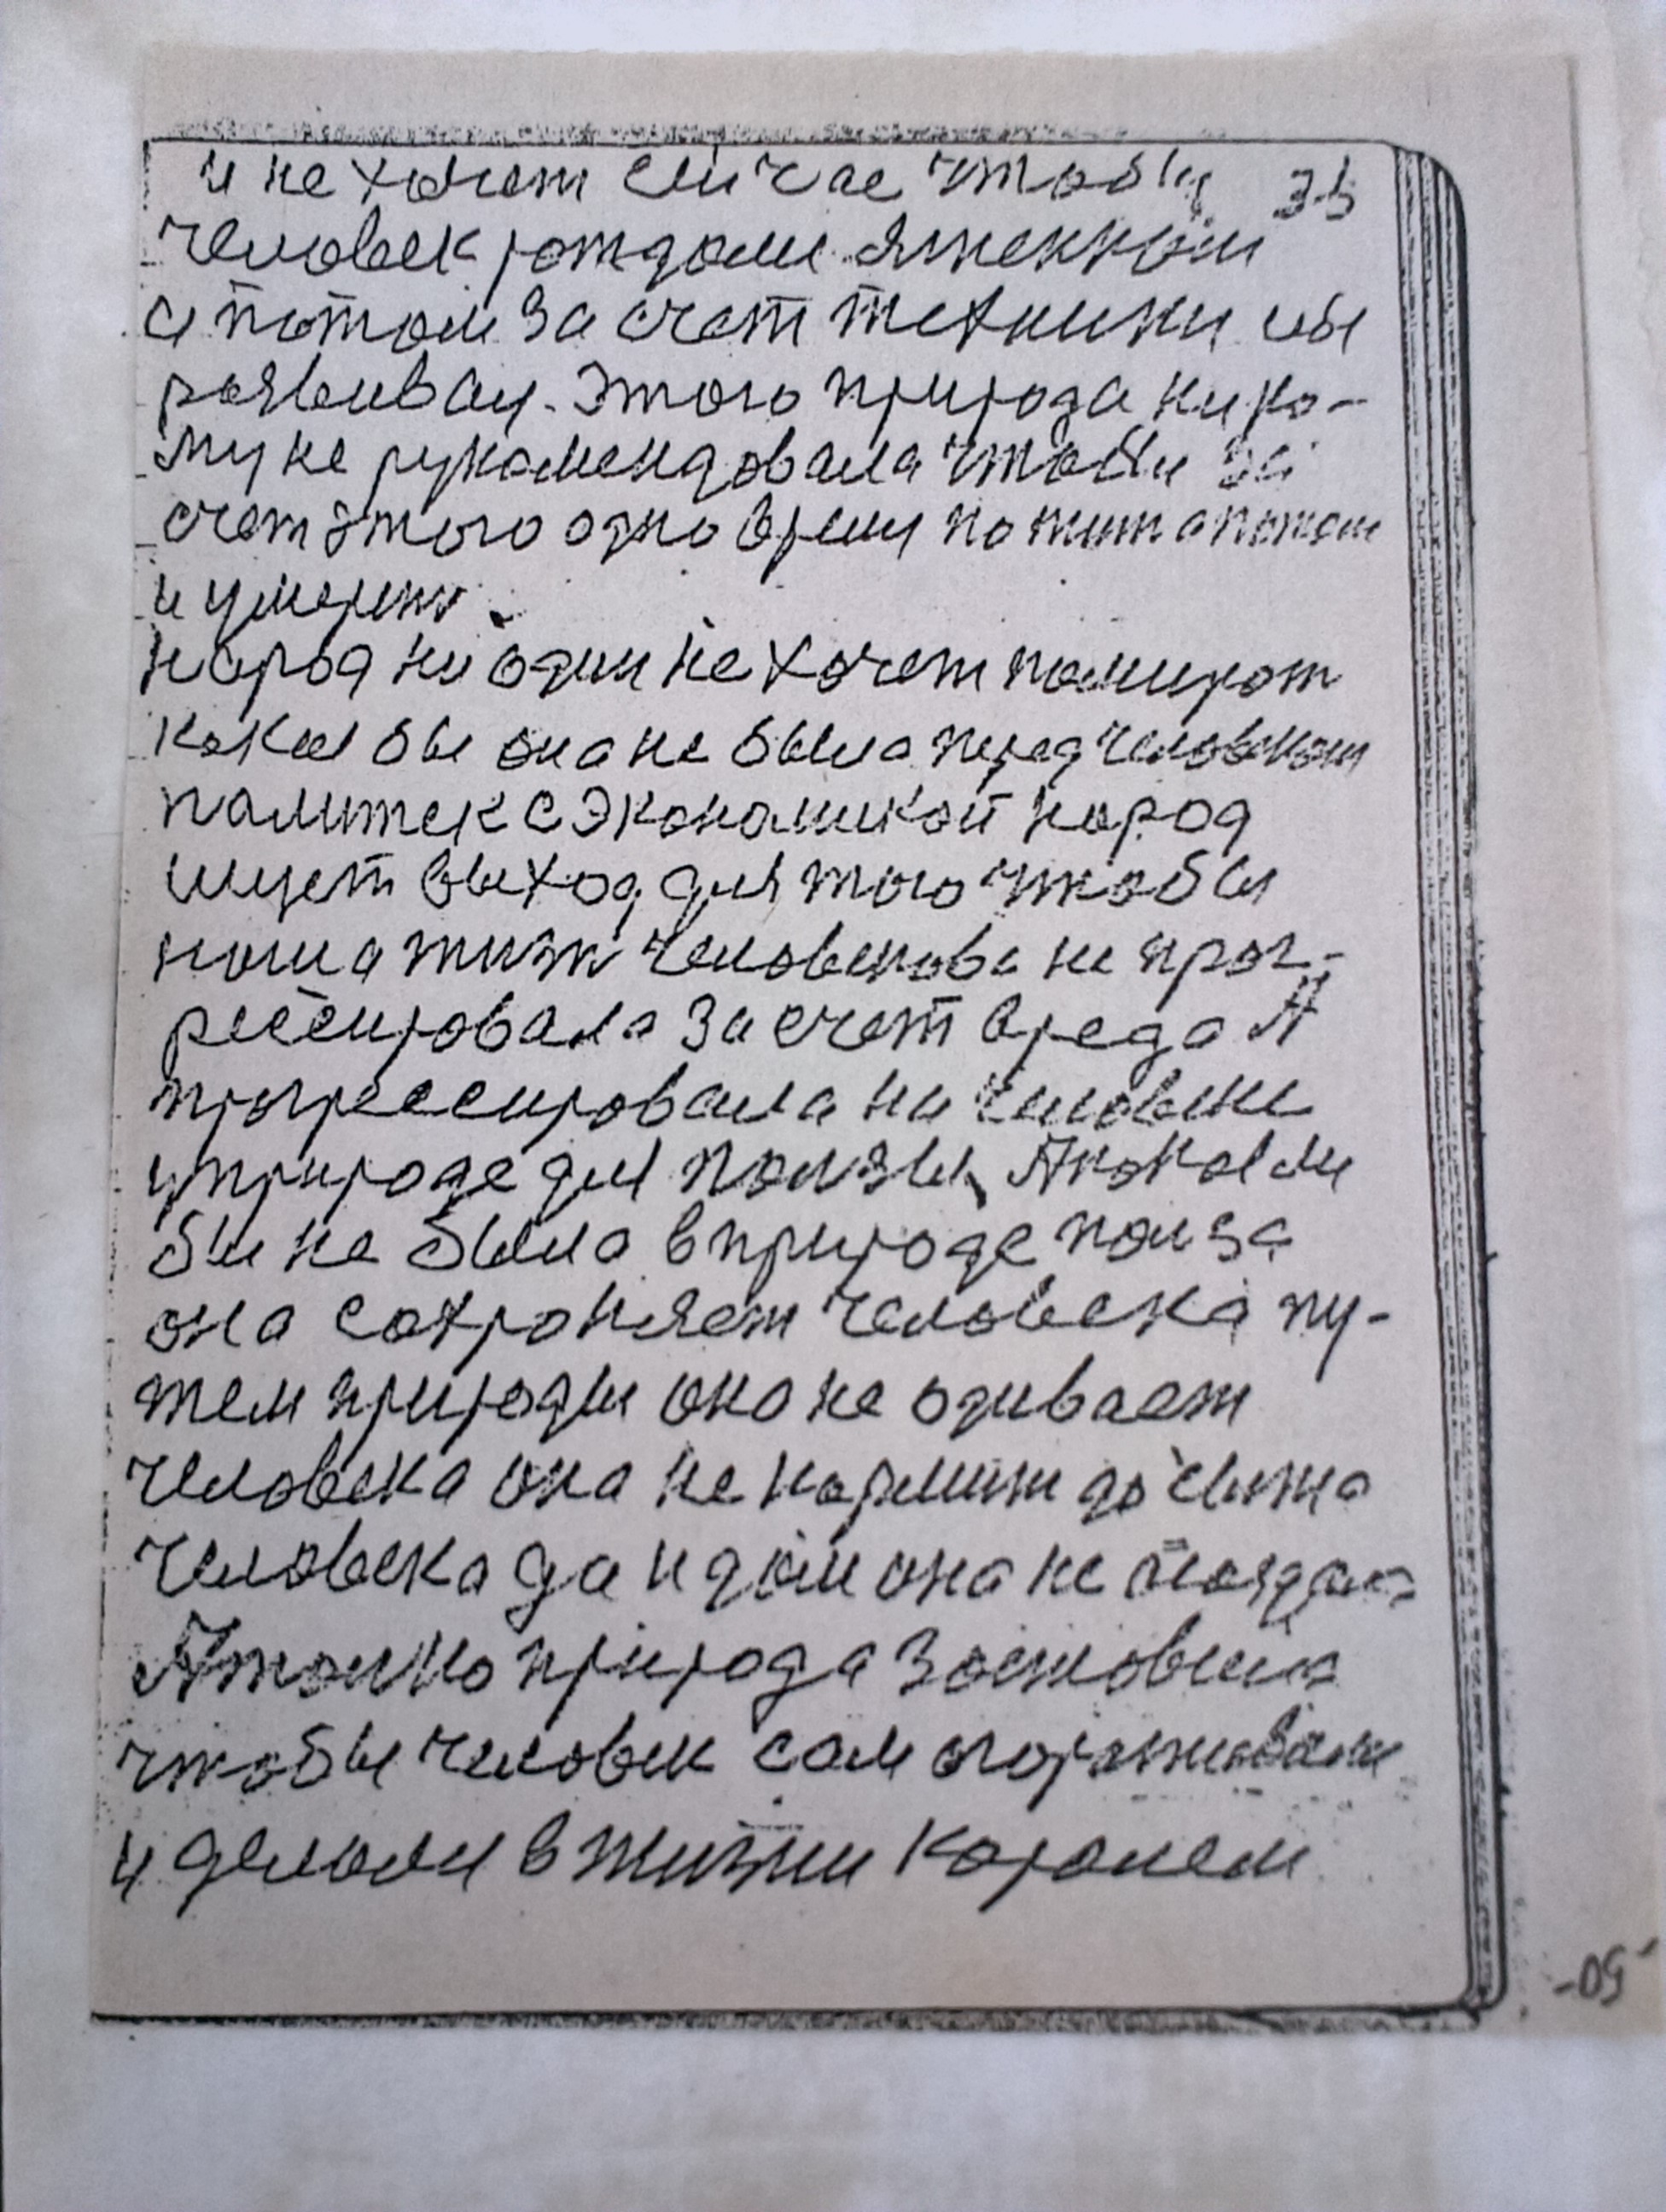 и не хочет сич час чтобы 35
человек рождался
а потом за счет техники
развивал. Этого природа нико-
му не рукомендовала чтобы за
счет этого одно время пожит а потом
и умереть.
народ ни один не хочет помират
какая бы она не была перед человеком
палитек с экономикой народ
ищет выход для того чтобы
наша жизн человекова не прог-
рессировала за счет вреда А
прогрессировала на человеке
у природе для ползы. А какая ли
бы не была в природе полза
она сохраняет человека пу-
тем природы она не одивает
человека она не кормит до сыта
человека да и дом она не создала
А толко природа заставила
чтобы человек сам
и делался в жизни
-50-